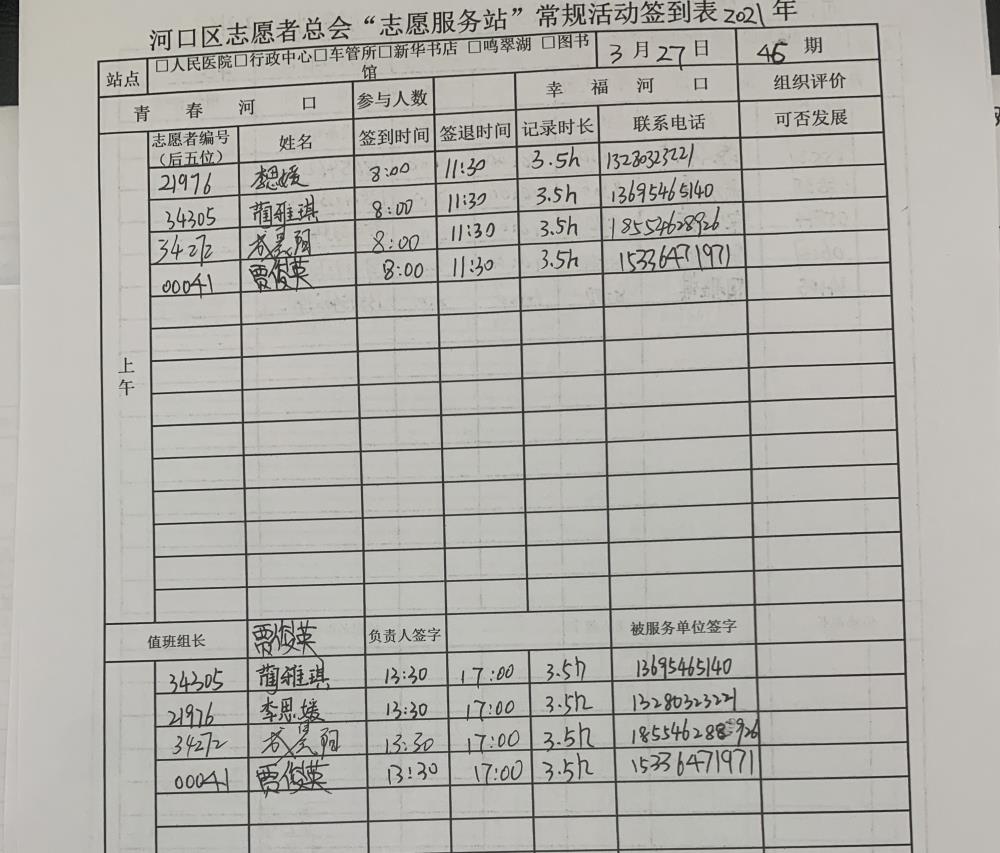 河口区志愿者总会“志愿服务站”常规活动签到表2021年
站点 □人民医院□行政中心□车管所□新华书店 □鸣翠湖 □图书馆 3月27日 46期
青春河口 参与人数 幸福河口 组织评价
志愿者编号（后五位） 姓名 签到时间 签退时间 记录时长 联系电话 可否发展
上午
21976 李思媛 8:00 11:30 3.5h 13280323221
34305 蔺雅琪 8:00 11:30 3.5h 13695465140
34272 8:00 11:30 3.5h 18554628926
00041 贾俊英 8:00 11:30 3.5h 15336471971
值班组长 贾俊英 负责人签字 被服务单位签字
34305 蔺雅琪 13:30 17:00 3.5h 13695465140
21976 李思媛 13:30 17:00 3.5h 13280323221
34272 13:30 17:00 3.5h
00041 贾俊英 13:30 17:00 3.5h 15336471971